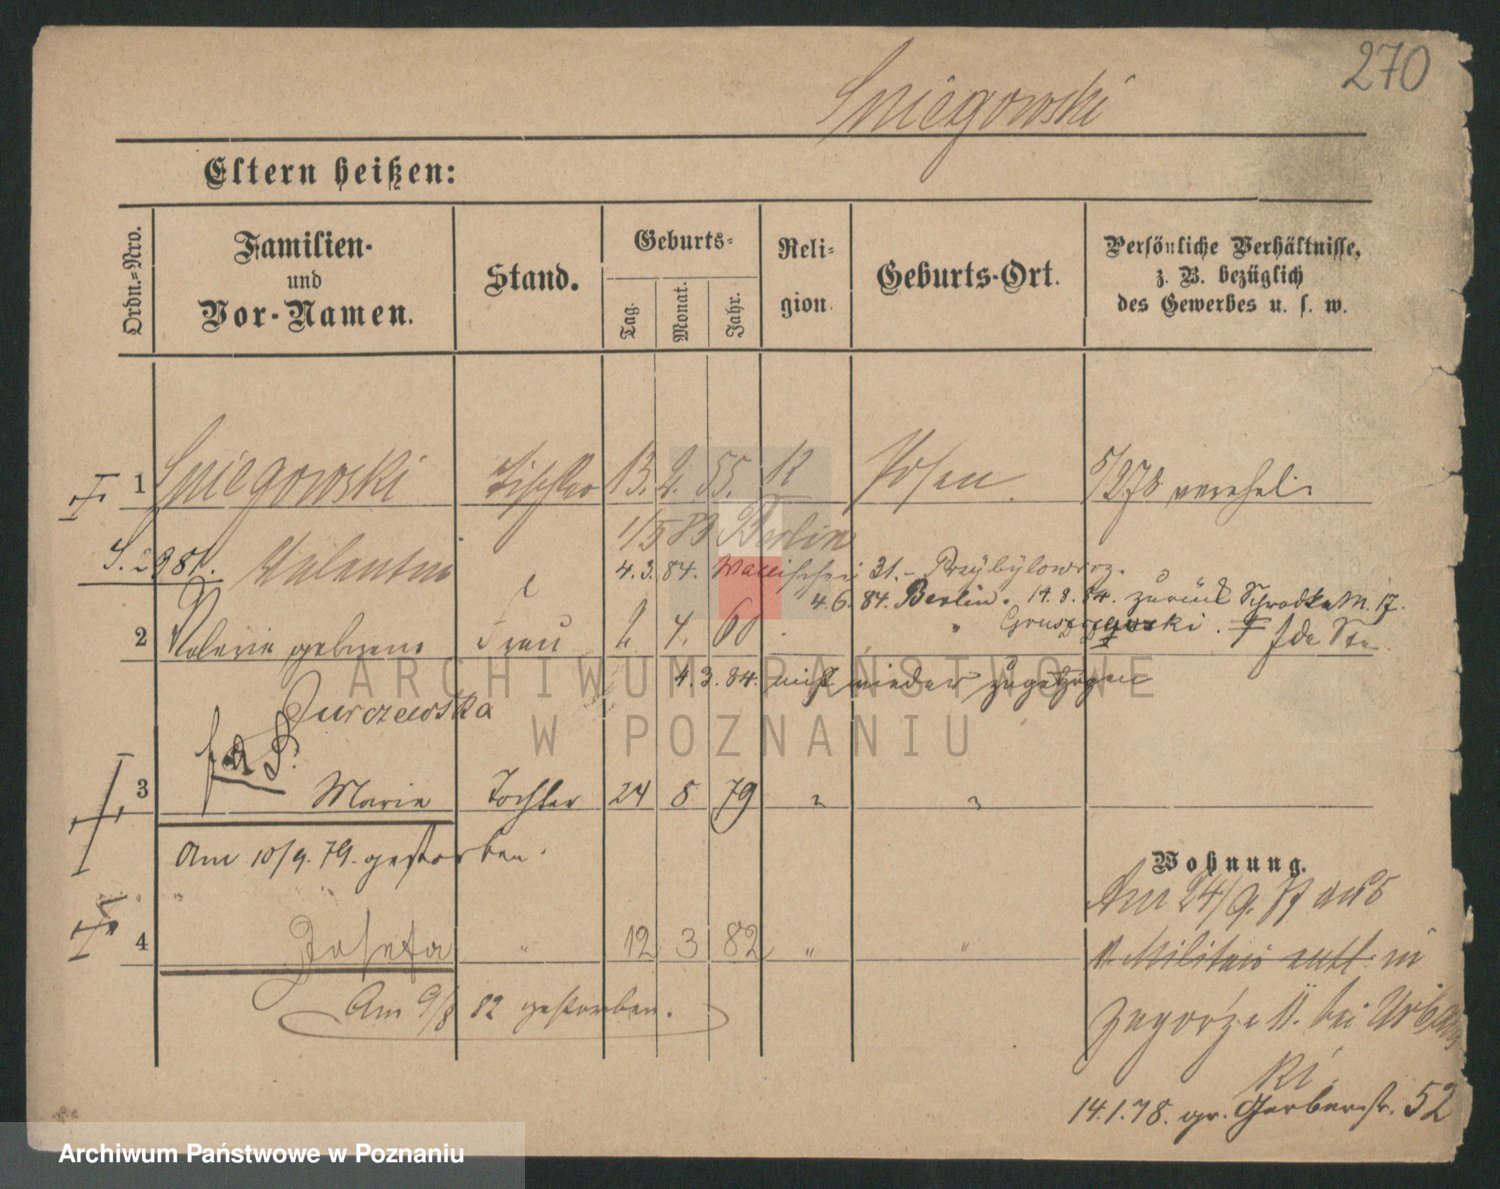 270
Sniegowski
Eltern heißen:
Ordn.=Nro.
Familien-
und
Vor-Namen.
Stand.
Geburts-
Tag.
Monat.
Jahr.
Reli-
gion.
Geburts-Ort.
Persönliche Verhältnisse,
z. B. bezüglich
des Gewerbes u. s. w.
1 Sniegowski Tischler 13. 2. 55. K Posen. 5/2 78 verehel.
1/5 83 Berlin
S. 298
Valentin 4. 3. 84. Wallischei 31. -
4. 6. 84. Berlin. 14. 8. 84. zurück Schrodka M. 17.
2 Valerie geborene Frau 2 4. 60
4. 3. 84. mit wieder zugezogen
Jurczewska
3 Marie Tochter 24 8 79 " "
Am 10/9. 79. gestorben.
Wohnung.
Am 24/9. 77 aus
4 Josefa " 12 3 82 " "
v. Militair entl. in
Am 9/8 82 gestorben.
Zagorze 11. bei Urban
ki.
14. 1. 78. gr. Gerberstr. 52
ARCHIWUM PAŃSTWOWE
W POZNANIU
Archiwum Państwowe w Poznaniu